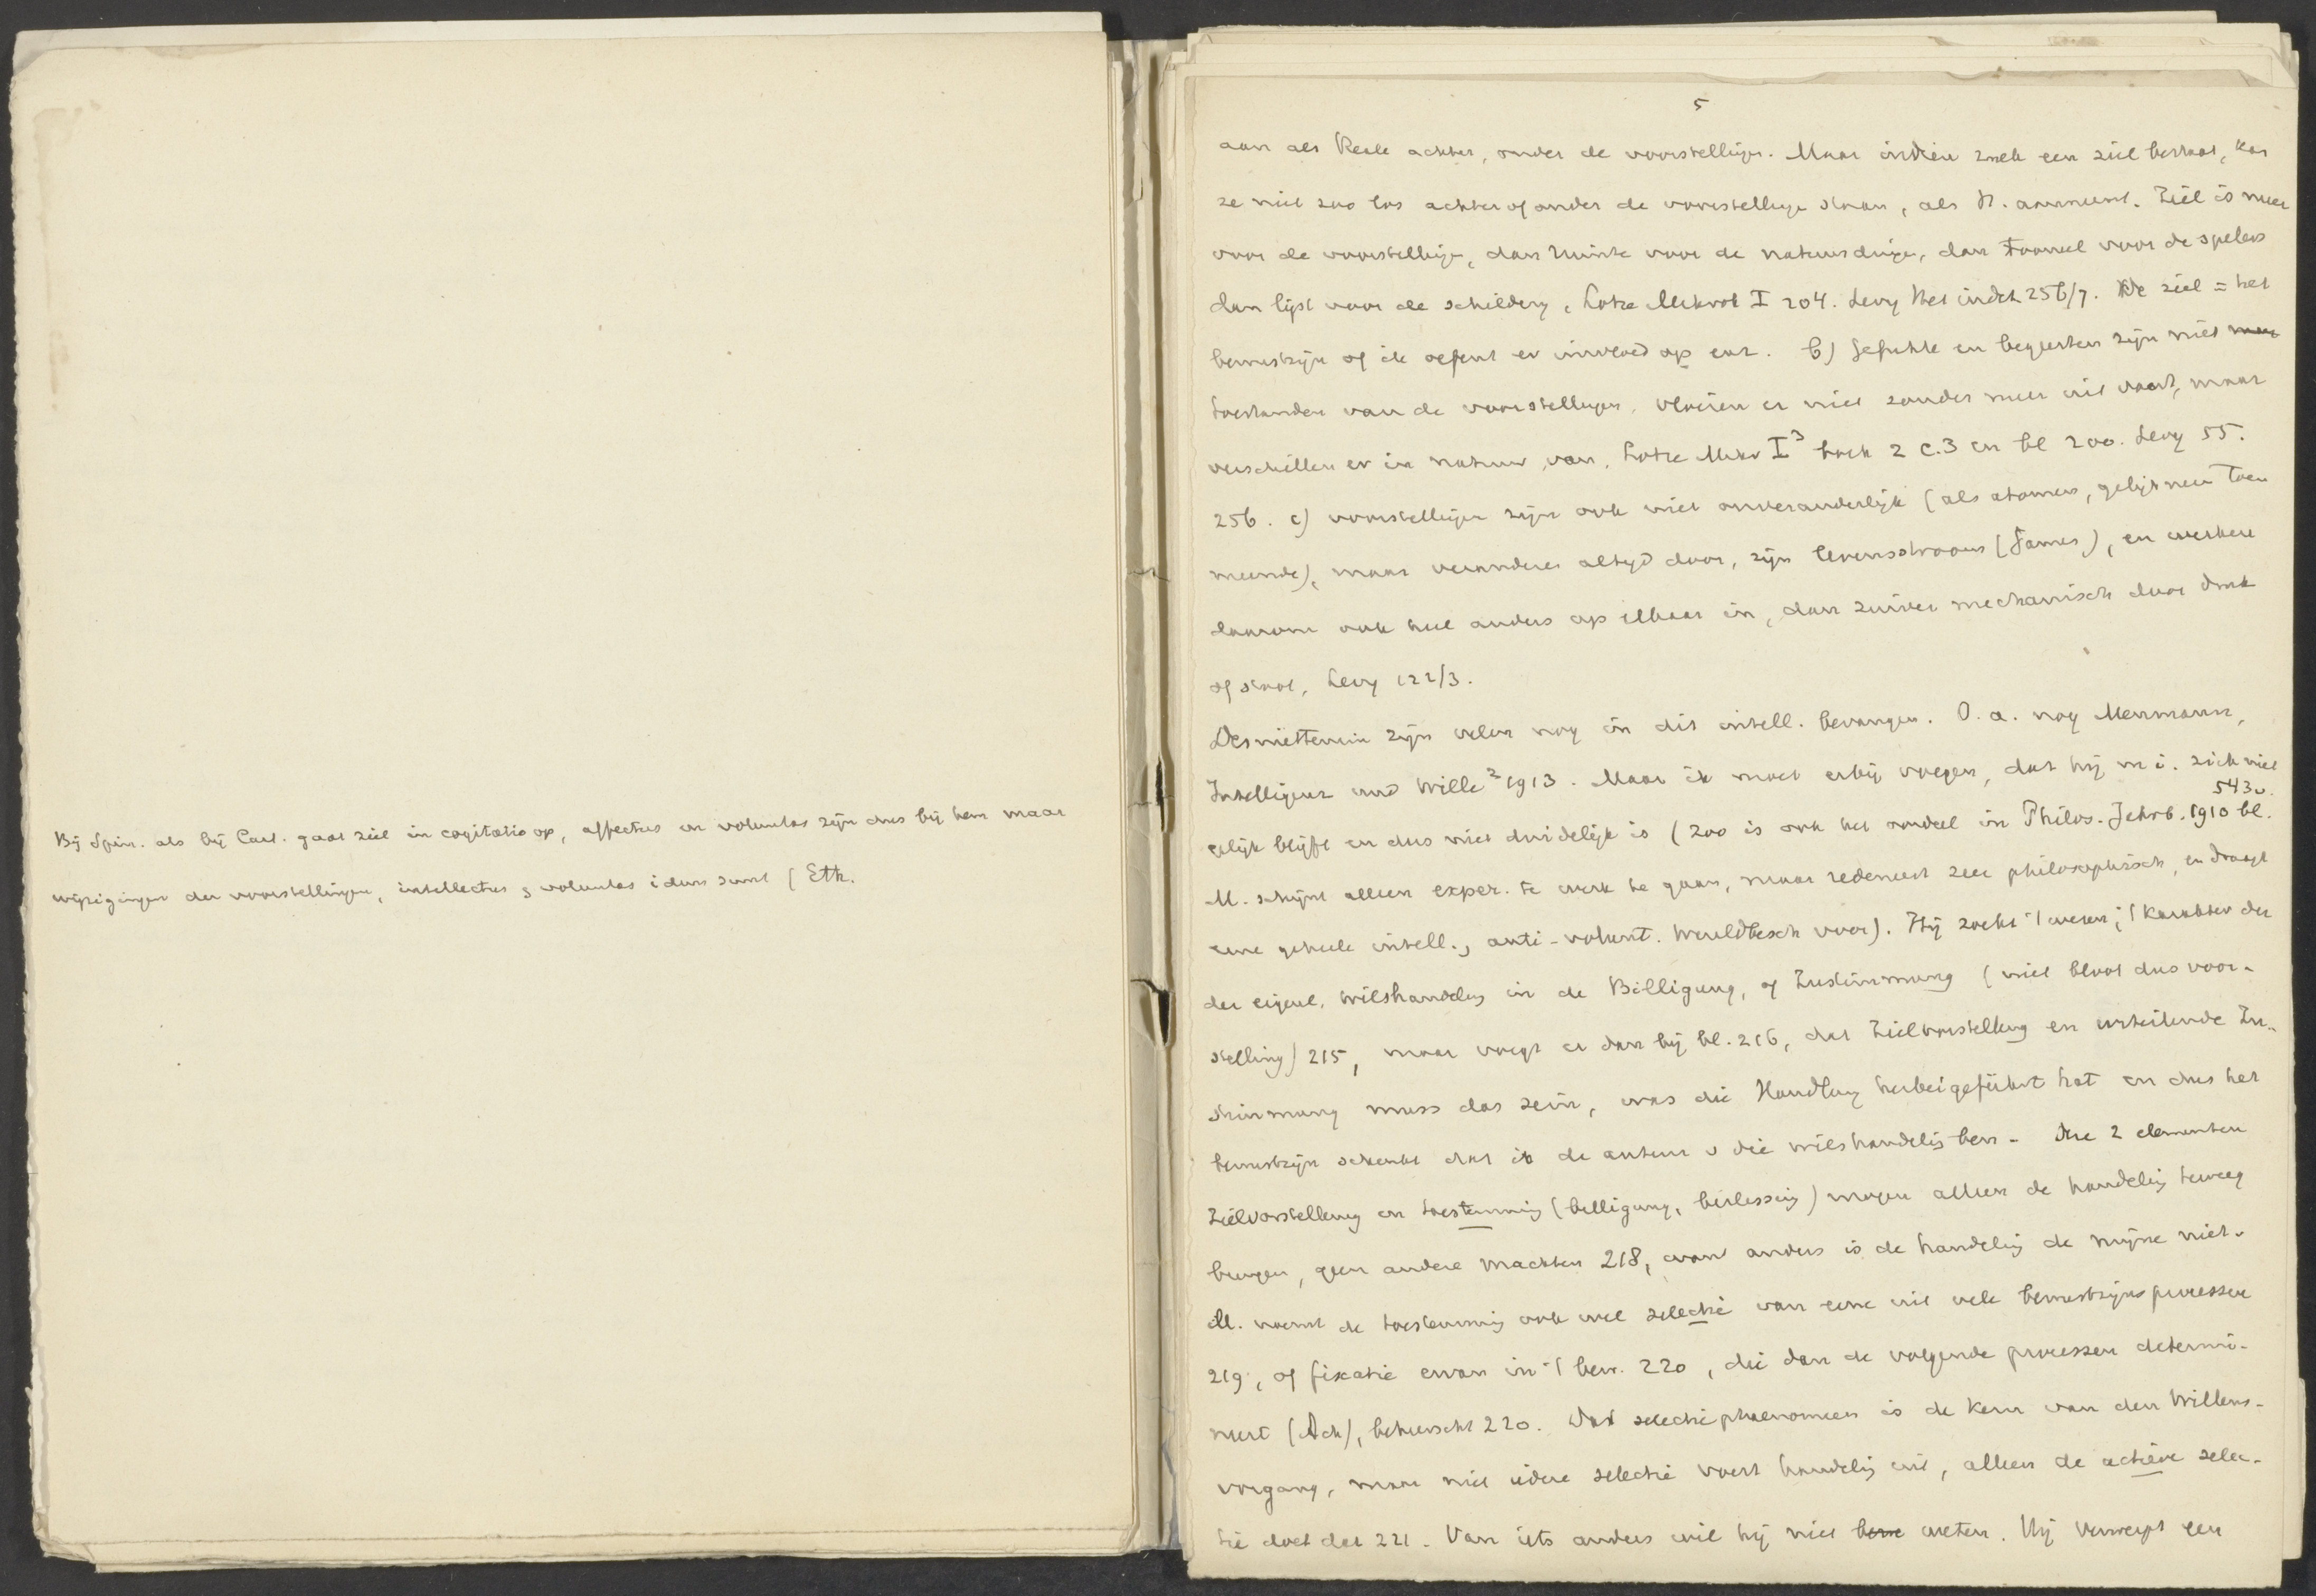 Bij Spin. als bij Cart. gaat ziel in cogitatio op, affectus en voluntas zijn dus bij hem maar
wijzigingen der voorstellingen, intellectus & voluntas idem sunt (Eth.
5
aan als Reale achter, onder de voorstellingen. Maar indien zulk een ziel bestaat, kan
ze niet zoo los achter of onder de voorstellinge staan, als H. aanneemt. Ziel is meer
voor de voorstellinge, dan Ruimte voor de natuurdinge, dan Tooneel voor de spelers
dan lijst voor de schildery, Lotze Mikrok I 204. Levy Het indet 256/7. De ziel = het
bewustzijn of ik oefent er invloed op enz. b) Gefuhle en begeerten zijn niet
toestanden van de voorstellingen, vloeien er niet zonder meer uit voort, maar
verschillen er in natuur van, Lotze Mikr I³ boek 2 c.3 en bl 200. Levy 55.
256. c) voorstellinge zijn ook niet onveranderlijk (als atomen, gelijk men toen
meende), maar veranderen altijd door, zijn levensstroom (James), en werken
daarom ook heel anders op elkaar in, dan zuiver mechanisch door druk
of stoot, Levy 122/3.
Desniettemin zijn velen nog in dit intell. bevangen. O.a. nog Meumann,
Intelligenz und Wille² 1913. Maar ik moet erbij voegen, dat hij m.i. zich niet
543v.
gelijk blijft en dus niet duidelijk is (zoo is ook het oordeel in Philos. Jahrb. 1910 bl.
M. schijnt alleen exper. te werk te gaan, maar redeneert zeer philosophisch, en draagt
eene geheele intell., anti-volunt. Wereldbesch voor). Hij zoekt 't wezen, 't karakter der
der eigenl. wilshandeling in de Billigung, of Zustimmung (niet bloot dus voor-
stelling) 215, maar voegt er dan bij bl. 216, dat Zielvorstellung en urteilende Zu-
stimmung muss das sein, was die Handlung herbeigeführt hat en dus het
bewustzijn schenkt dat ik de auteur v die wilshandeling ben. Die 2 elementen
Zielvorstellung en toestemming (billigung, beslissing) mogen alleen de handeling teweeg
brengen, geen andere machten 218, want anders is de handeling de mijne niet.
M. noemt de toestemming ook wel selectie van eene uit vele bewustzijnsprocessen
219, of fixatie ervan in 't bew. 220, die dan de volgende processen determi-
neert (Ach), beheerscht 220. Dat selectiephaenomeen is de kern van den Willens-
vorgang, maar niet iedere selectie voert handeling uit, alleen de actieve selec-
tie doet dat 221. Van iets anders wil hij niet weten. Hij verwerpt een